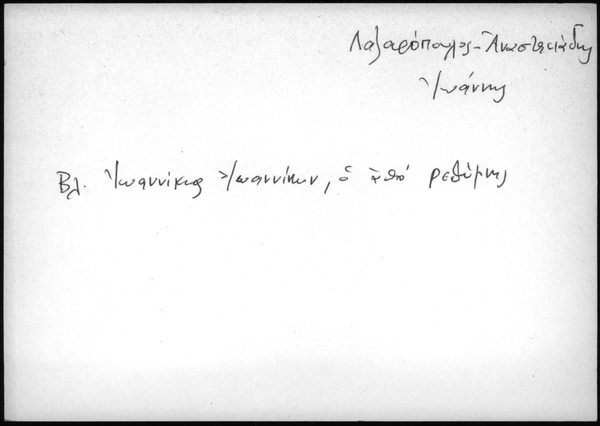 Λαζαρόπουλος-Ἀναστασιάδης
Ἰωάννης
Βλ. Ἰωαννίκιος Ἰωαννίνων, ὁ ἀπό ρεθύμνης